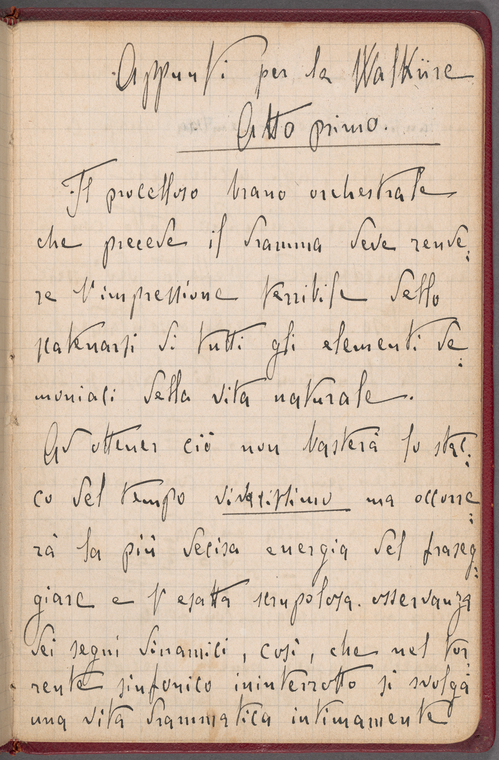 Appunti per la Walküre
Atto primo.
Il procelloso brano orchestrale
che precede il dramma deve rende:
re l'impressione terribile dello
scatenarsi di tutti gli elementi de:
moniaci della vita naturale.
Ad ottener ciò non basterà lo stac:
co del tempo vivacissimo ma occorre:
rà la più decisa energia del fraseg:
giare e l'esatta scrupolosa osservanza
dei segni dinamici, così, che nel tor:
rente sinfonico ininterrotto si svolga
una vita drammatica intimamente